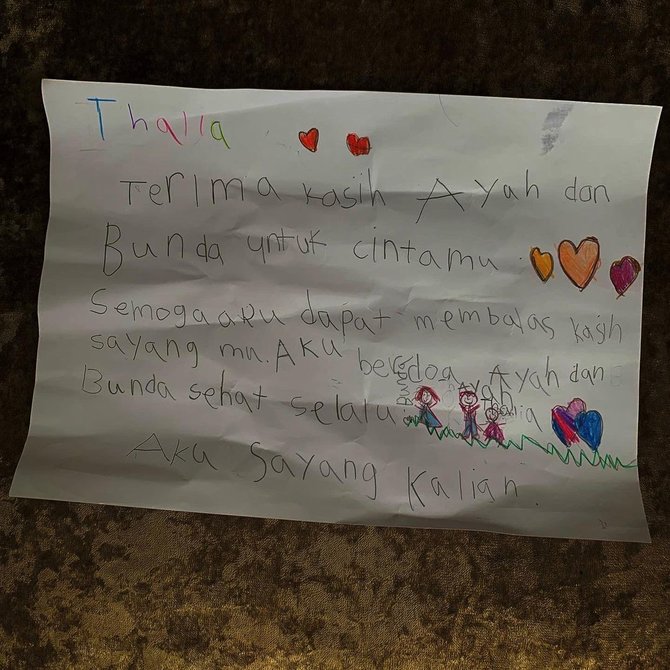 Thalia
Terima kasih Ayah dan
Bunda untuk cintamu
Semoga aku dapat membalas kasih
sayang mu. Aku berdoa Ayah dan
Bunda sehat selalu.
Bunda Ayah Thalia
Aku Sayang Kalian.